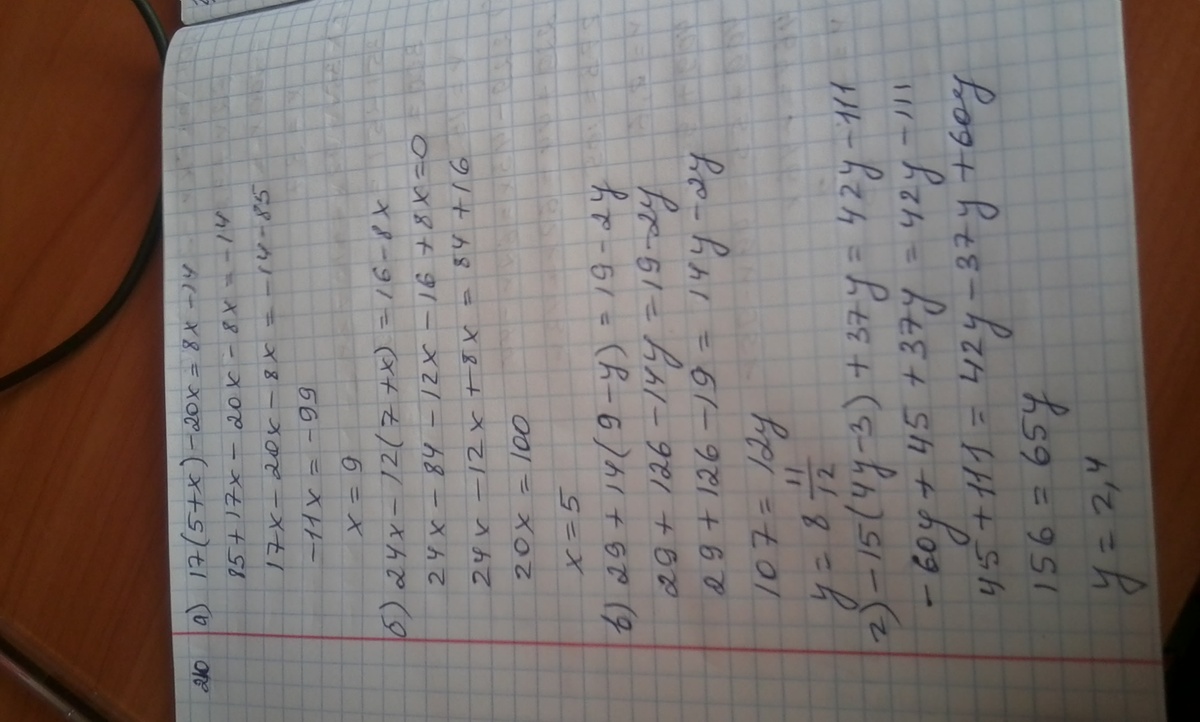 210 а) 17(5+x)-20x=8x-14
85+17x-20x-8x=-14
17x-20x-8x=-14-85
-11x=-99
x=9
б) 24x-12(7+x)=16-8x
24x-84-12x-16+8x=0
24x-12x+8x=84+16
20x=100
x=5
в) 29+14(9-y)=19-2y
29+126-14y=19-2y
29+126-19=14y-2y
107=12y
y=8 11/12
г) -15(4y-3)+37y=42y-111
-60y+45+37y=42y-111
45+111=42y-37y+60y
156=65y
y=2,4